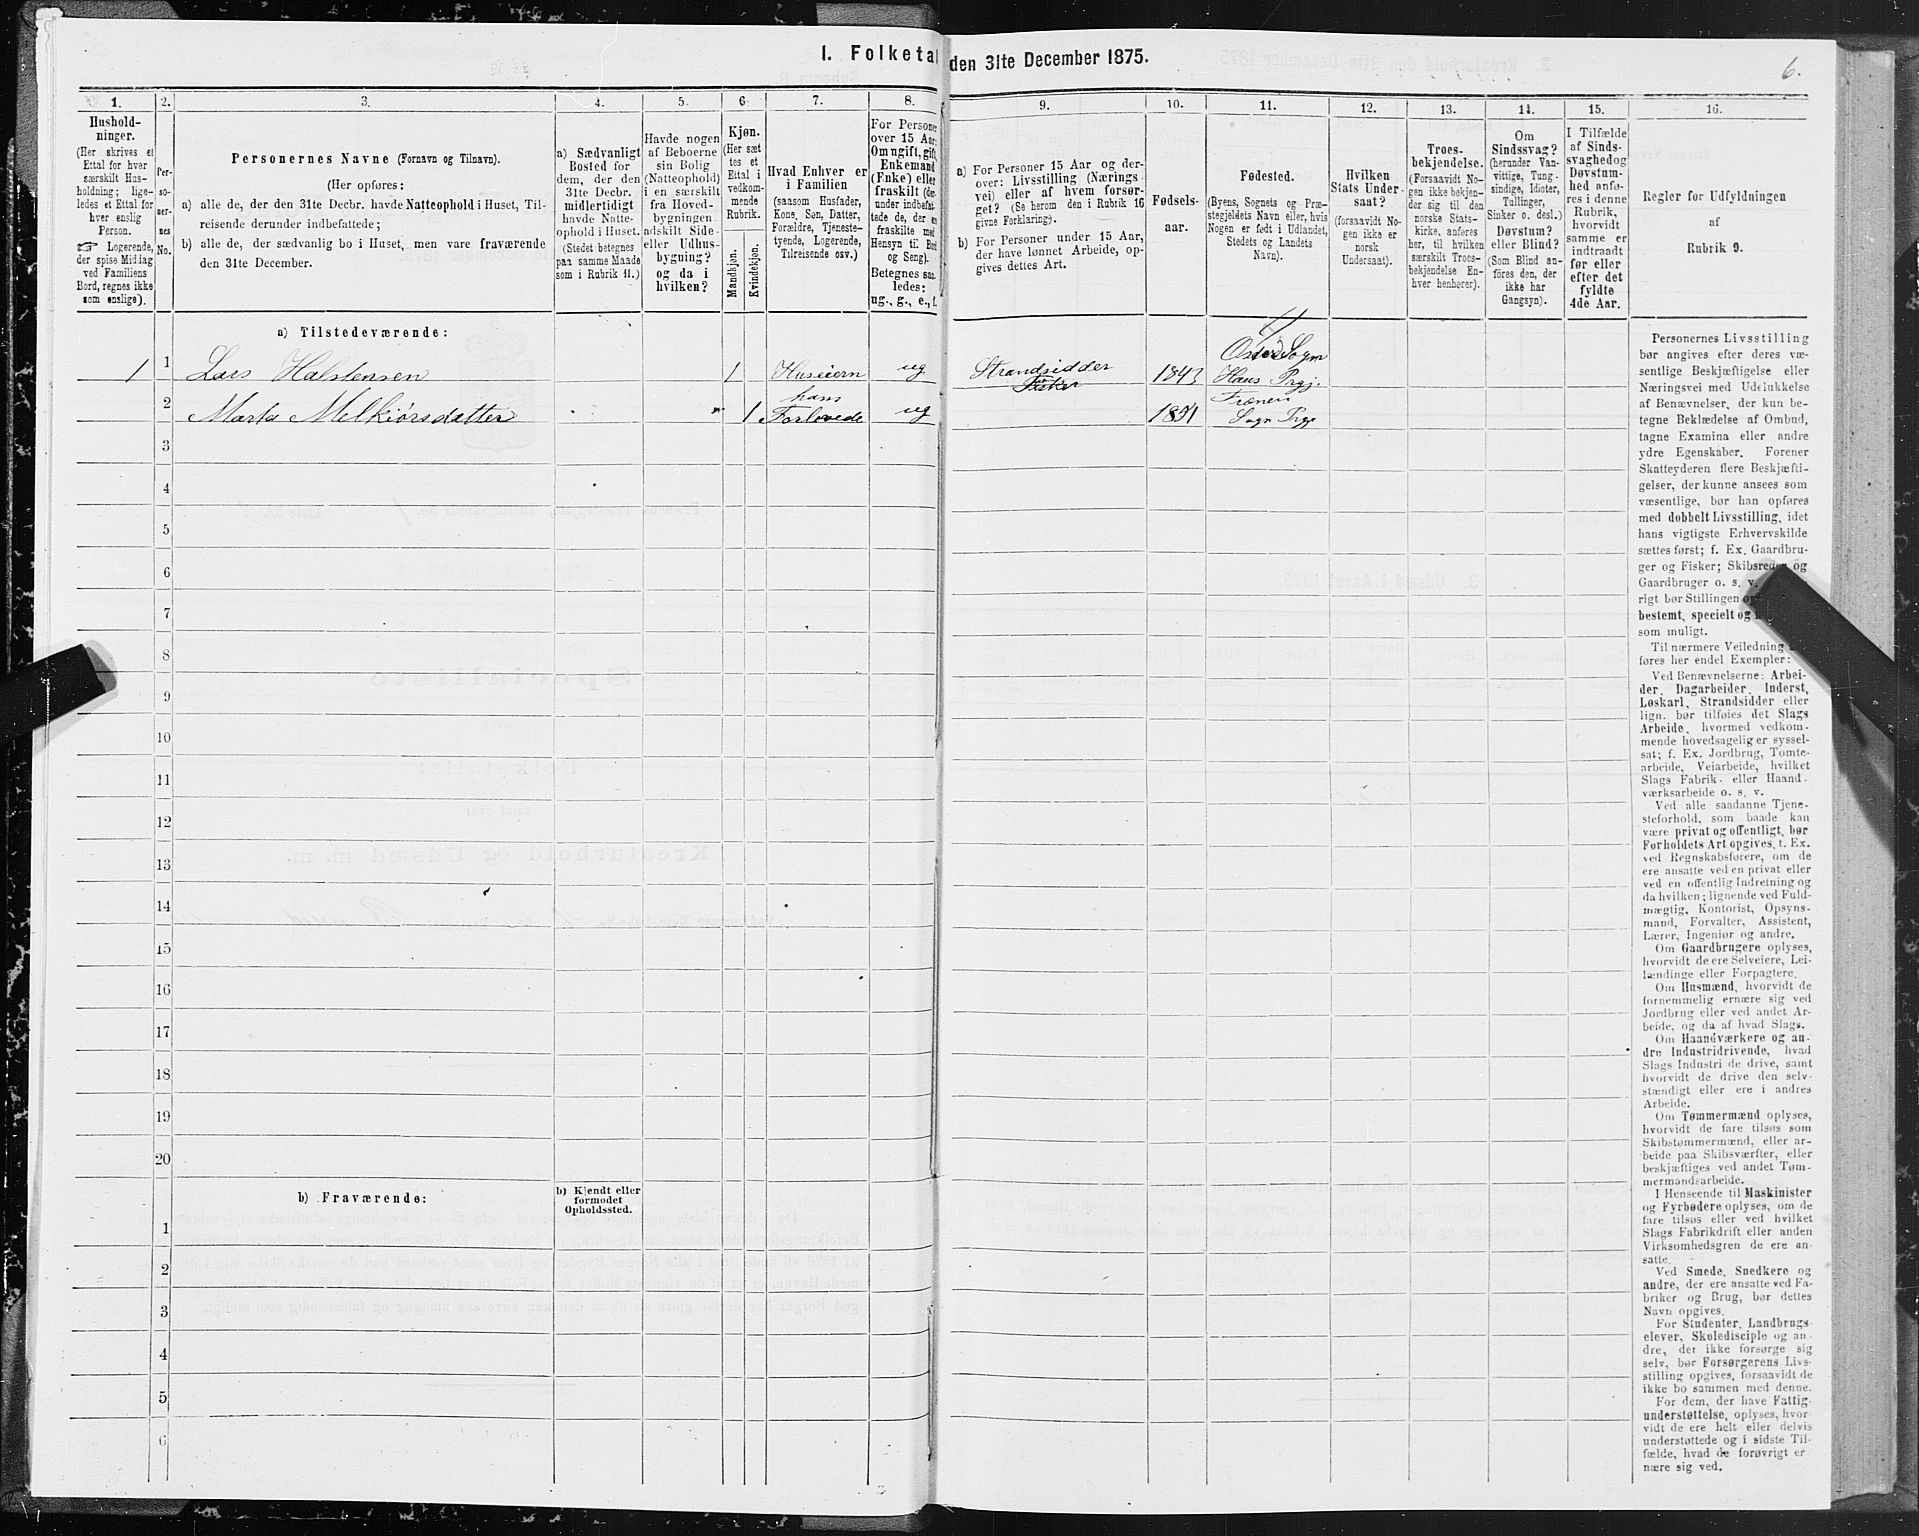 1. Folketal den 31te December 1875.
6.
1.
Hushold-
ninger.
(Her skrives et
Ettal for hver
særskilt Hus-
holdning; lige-
ledes et Ettal for
hver enslig
Person.
☞ Logerende,
der spise Middag
ved Familiens
Bord, regnes ikke
som enslige).
2.
Per-
so-
ner-
nes
No.
3.
Personernes Navne (Fornavn og Tilnavn).
(Her opføres:
a) alle de, der den 31te Decbr. havde Natteophold i Huset, Til-
reisende derunder indbefattede;
b) alle de, der sædvanlig bo i Huset, men vare fraværende
den 31te December.
4.
a) Sædvanligt
Bosted for
dem, der den
31te Decbr.
midlertidigt
havde Natte-
ophold i Huset.
(Stedet betegnes
paa samme Maade
som i Rubrik 11.)
5.
Havde nogen
af Beboerne
sin Bolig
(Natteophold)
i en særskilt
fra Hoved-
bygningen
adskilt Side-
eller Udhus-
bygning?
og da i
hvilken?
6.
Kjøn.
(Her sæt-
tes et
Ettal i
vedkom-
mende
Rubrik.
Mandkjøn.
Kvindekjøn.
7.
Hvad Enhver er
i Familien
(saasom Husfader,
Kone, Søn, Datter,
Forældre, Tjeneste-
tyende, Logerende,
Tilreisende osv.)
8.
For Personer
over 15 Aar:
Om ugift, gift,
Enkemand
(Enke) eller
fraskilt (der-
under indbefat-
tede de, der ere
fraskilte med
Hensyn til Bord
og Seng).
Betegnes saa-
ledes:
ug., g., e., f.
9.
a) For Personer 15 Aar og der-
over: Livsstilling (Nærings-
vei) eller af hvem forsør-
get? (Se herom den i Rubrik 16
givne Forklaring).
b) For Personer under 15 Aar,
der have lønnet Arbeide, op-
gives dettes Art.
10.
Fødsels-
aar.
11.
Fødested.
(Byens, Sognets og Præ-
stegjeldets Navn eller, hvis
Nogen er født i Udlandet,
Stedets og Landets
Navn).
12.
Hvilken
Stats Under-
saat?
(forsaavidt No-
gen ikke er
norsk
Undersaat).
13.
Troes-
bekjendelse.
(Forsaavidt No-
gen ikke bekjen-
der sig til den
norske Stats-
kirke, anføres
her, til hvilken
særskilt Troes-
bekjendelse En-
hver henhører).
14.
Om
Sindssvag?
(herunder Van-
vittige, Tung-
sindige, Idioter,
Tullinger,
Sinker o. desl.)
Døvstum?
eller Blind?
(Som Blind an-
føres den, der
ikke har
Gangsyn).
15.
I Tilfælde
af Sinds-
svaghed og
Døvstum-
hed anfø-
res i denne
Rubrik,
hvorvidt
samme er
indtraadt
før eller
efter det
fyldte
4de Aar.
16.
Regler for Udfyldningen
af
Rubrik 9.
a) Tilstedeværende:
1 1 Lars Halstensen 1 Huseiern ug Strandsidder Fisker 1843 Oster Sogn Haus Prgj.
2 Marta Melkiorsdatter 1 hans Forlovede ug 1851 Sogn Prgj
3
4
5
6
7
8
9
10
11
12
13
14
15
16
17
18
19
20
b) Fraværende:
b) Kjendt eller
formodet
Opholdssted.
1
2
3
4
5
6
Personernes Livsstilling
bør angives efter deres væ-
sentlige Beskjæftigelse eller
Næringsvei med Udelukkelse
af Benævnelser, der kun be-
tegne Beklædelse af Ombud,
tagne Examina eller andre
ydre Egenskaber. Forener
Skatteyderen flere Beskjæfti-
gelser, der kunne ansees som
væsentlige, bør han opføres
med dobbelt Livsstilling, idet
hans vigtigste Erhvervskilde
sættes først; f. Ex. Gaardbru-
ger og Fisker; Skibsreder og
Gaardbruger o. s. v.
rigt bør Stillingen
bestemt, specielt og
som muligt.
Til nærmere Veiledning
føres her endel Exempler:
Ved Benævnelserne: Arbei-
der, Dagarbeider, Inderst,
Løskarl, Strandsidder eller
lign. bør tilføies det Slags
Arbeide, hvormed vedkom-
mende hovedsagelig er syssel-
sat; f. Ex. Jordbrug, Tomte-
arbeide, Veiarbeide, hvilket
Slags Fabrik- eller Haand-
værksarbeide o. s. v.
Ved alle saadanne Tjene-
steforhold, som baade kan
være privat og offentligt, bør
Forholdets Art opgives, f. Ex.
ved Regnskabsførere, om de
ere ansatte ved en privat eller
ved en offentlig Indretning og
da hvilken; lignende ved Fuld-
mægtig, Kontorist, Opsyns-
mand, Forvalter, Assistent,
Lærer, Ingeniør og andre.
Om Gaardbrugere oplyses,
hvorvidt de ere Selveiere, Lei-
lændinge eller Forpagtere.
Om Husmænd, hvorvidt de
fornemmelig ernære sig ved
Jordbrug eller ved andet Ar-
beide, og da af hvad Slags.
Om Haandværkere og an-
dre Industridrivende, hvad
Slags Industri de drive, samt
hvorvidt de drive den selv-
stændigt eller ere i andres
Arbeide.
Om Tømmermænd oplyses,
hvorvidt de fare tilsøs som
Skibstømmermænd, eller ar-
beide paa Skibsværfter, eller
beskjæftiges ved andet Tøm-
mermandsarbeide.
I Henseende til Maskinister
og Fyrbødere oplyses, om de
fare tilsøs eller ved hvilket
Slags Fabrikdrift eller anden
Virksomhedsgren de ere an-
satte.
Ved Smede, Snedkere og
andre, der ere ansatte ved Fa-
briker og Brug, bør dettes
Navn opgives.
For Studenter, Landbrugs-
elever, Skoledisciple og an-
dre, der ikke forsørge sig
selv, bør Forsørgerens Livs-
stilling opgives, forsaavidt de
ikke bo sammen med denne.
For dem, der have Fattig-
understøttelse, oplyses, hvor-
vidt de ere helt eller delvis
understøttede og i sidste Til-
fælde, hvad de forøvrigt er-
nære sig ved.